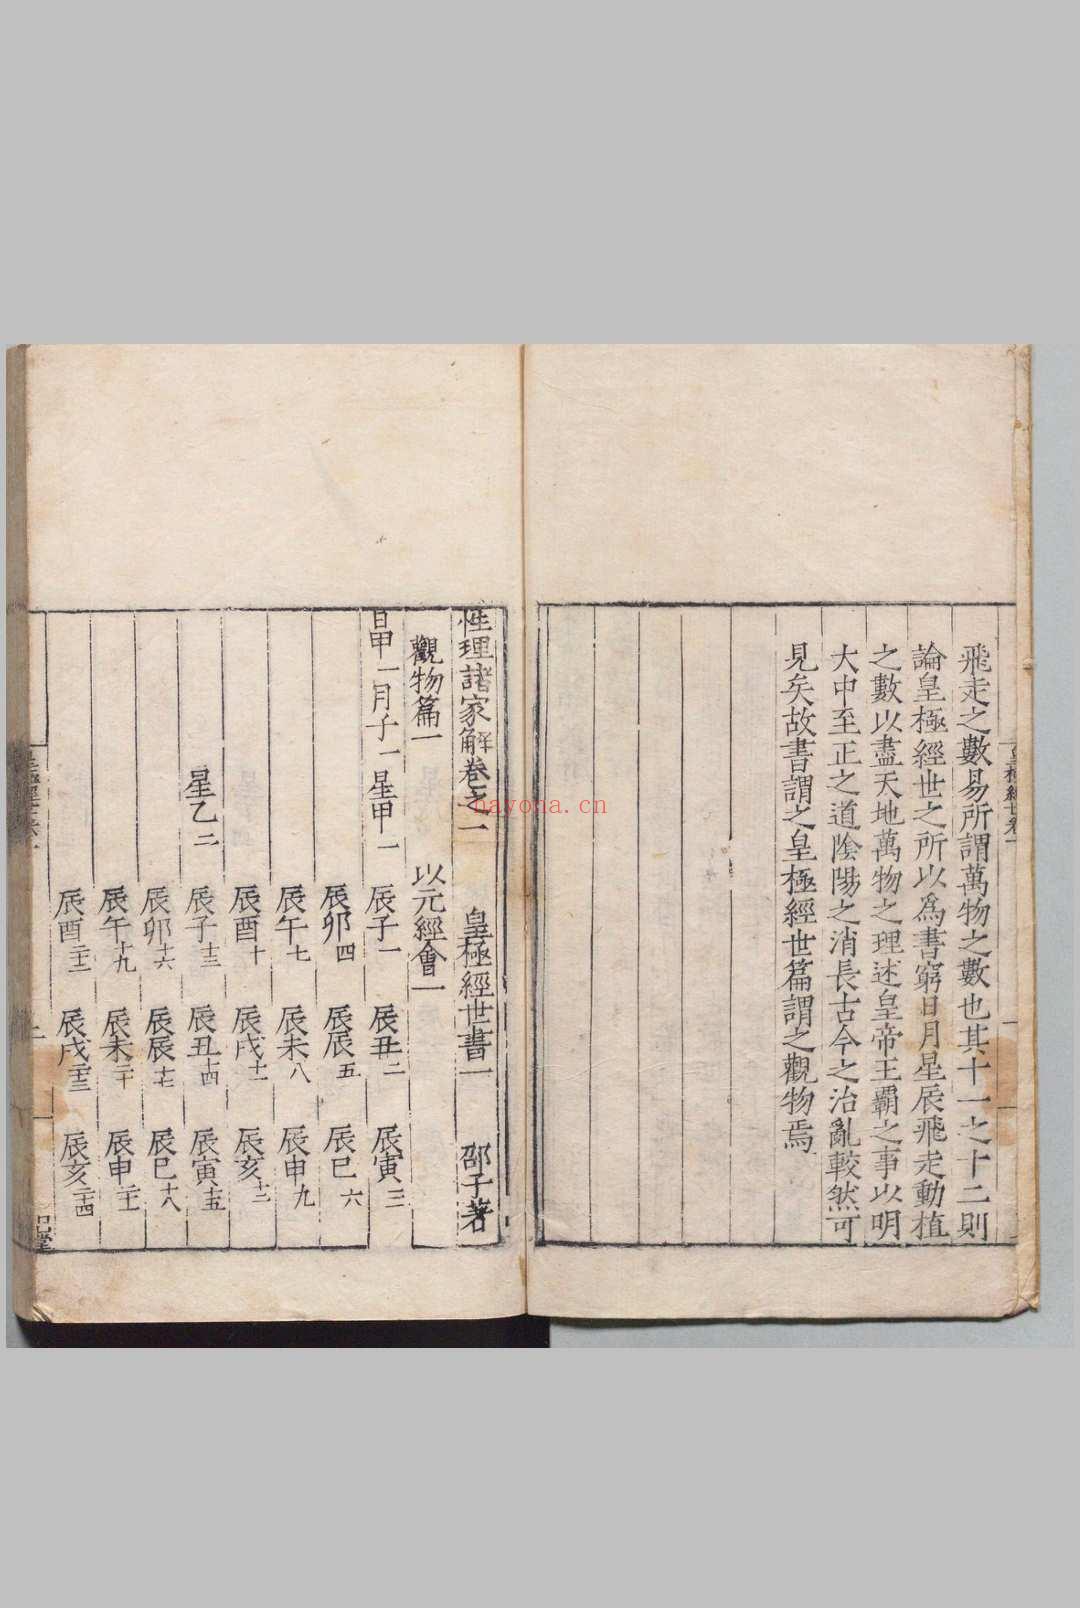 飛走之數易所謂萬物之數也其十一之十二則
論皇極經世之所以為書窮日月星辰飛走動植
之數以盡天地萬物之理述皇帝王霸之事以明
大中至正之道陰陽之消長古今之治亂較然可
見矣故書謂之皇極經世篇謂之觀物焉
性理諸家解卷之一 皇極經世書一 邵子著
觀物篇一 以元經會一
日甲一月子一星甲一 辰子一 辰丑二 辰寅三
辰卯四 辰辰五 辰巳六
辰午七 辰未八 辰申九
辰酉十 辰戌十一 辰亥十二
星乙二 辰子十三 辰丑十四 辰寅十五
辰卯十六 辰辰十七 辰巳十八
辰午十九 辰未二十 辰申二十一
辰酉二十二 辰戌二十三 辰亥二十四
nayona.cn